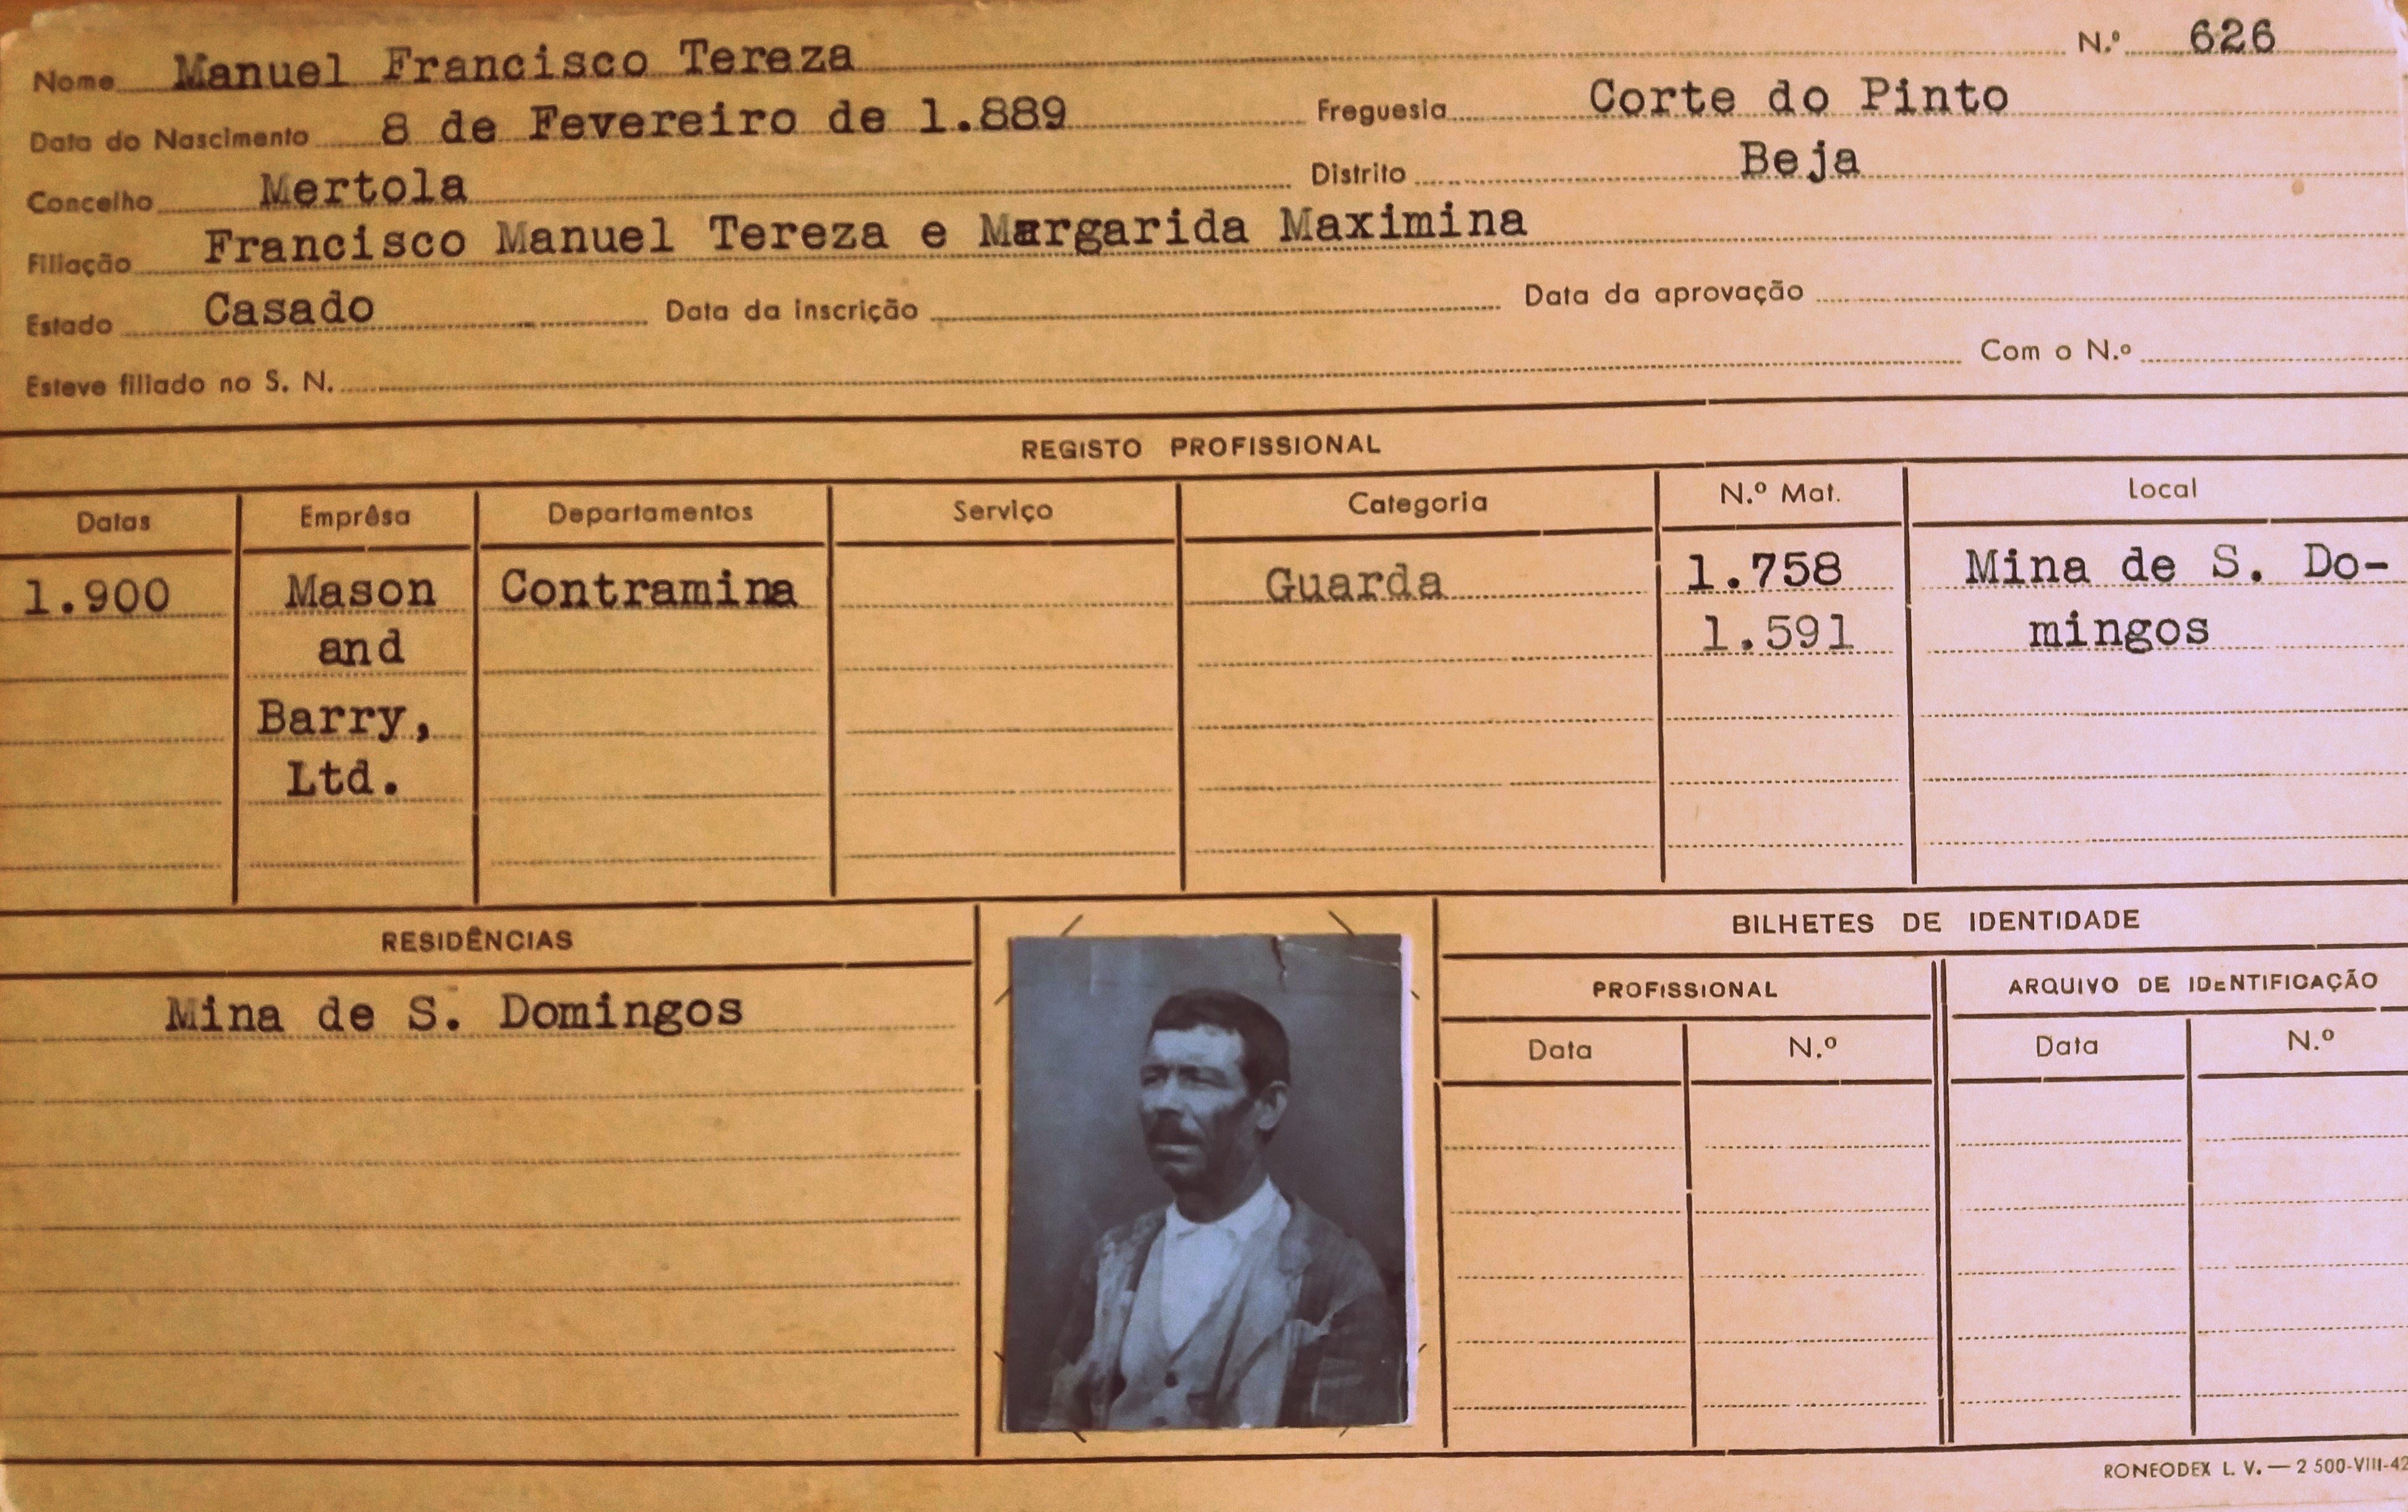 Nome Manuel Francisco Tereza N.º 626
Data do Nascimento 8 de Fevereiro de 1.889 Freguesia Corte do Pinto
Concelho Mertola Distrito Beja
Filiação Francisco Manuel Tereza e Margarida Maximina
Estado Casado Data da inscrição Data da aprovação
Esteve filiado no S. N. Com o N.º
REGISTO PROFISSIONAL
Datas Emprêsa Departamentos Serviço Categoria N.º Mat. Local
1.900 Mason Contramina Guarda 1.758 Mina de S. Do-
and 1.591 mingos
Barry,
Ltd.
RESIDÊNCIAS BILHETES DE IDENTIDADE
PROFISSIONAL ARQUIVO DE IDENTIFICAÇÃO
Mina de S. Domingos
Data N.º Data N.º
RONEODEX L. V. — 2 500-VIII-42